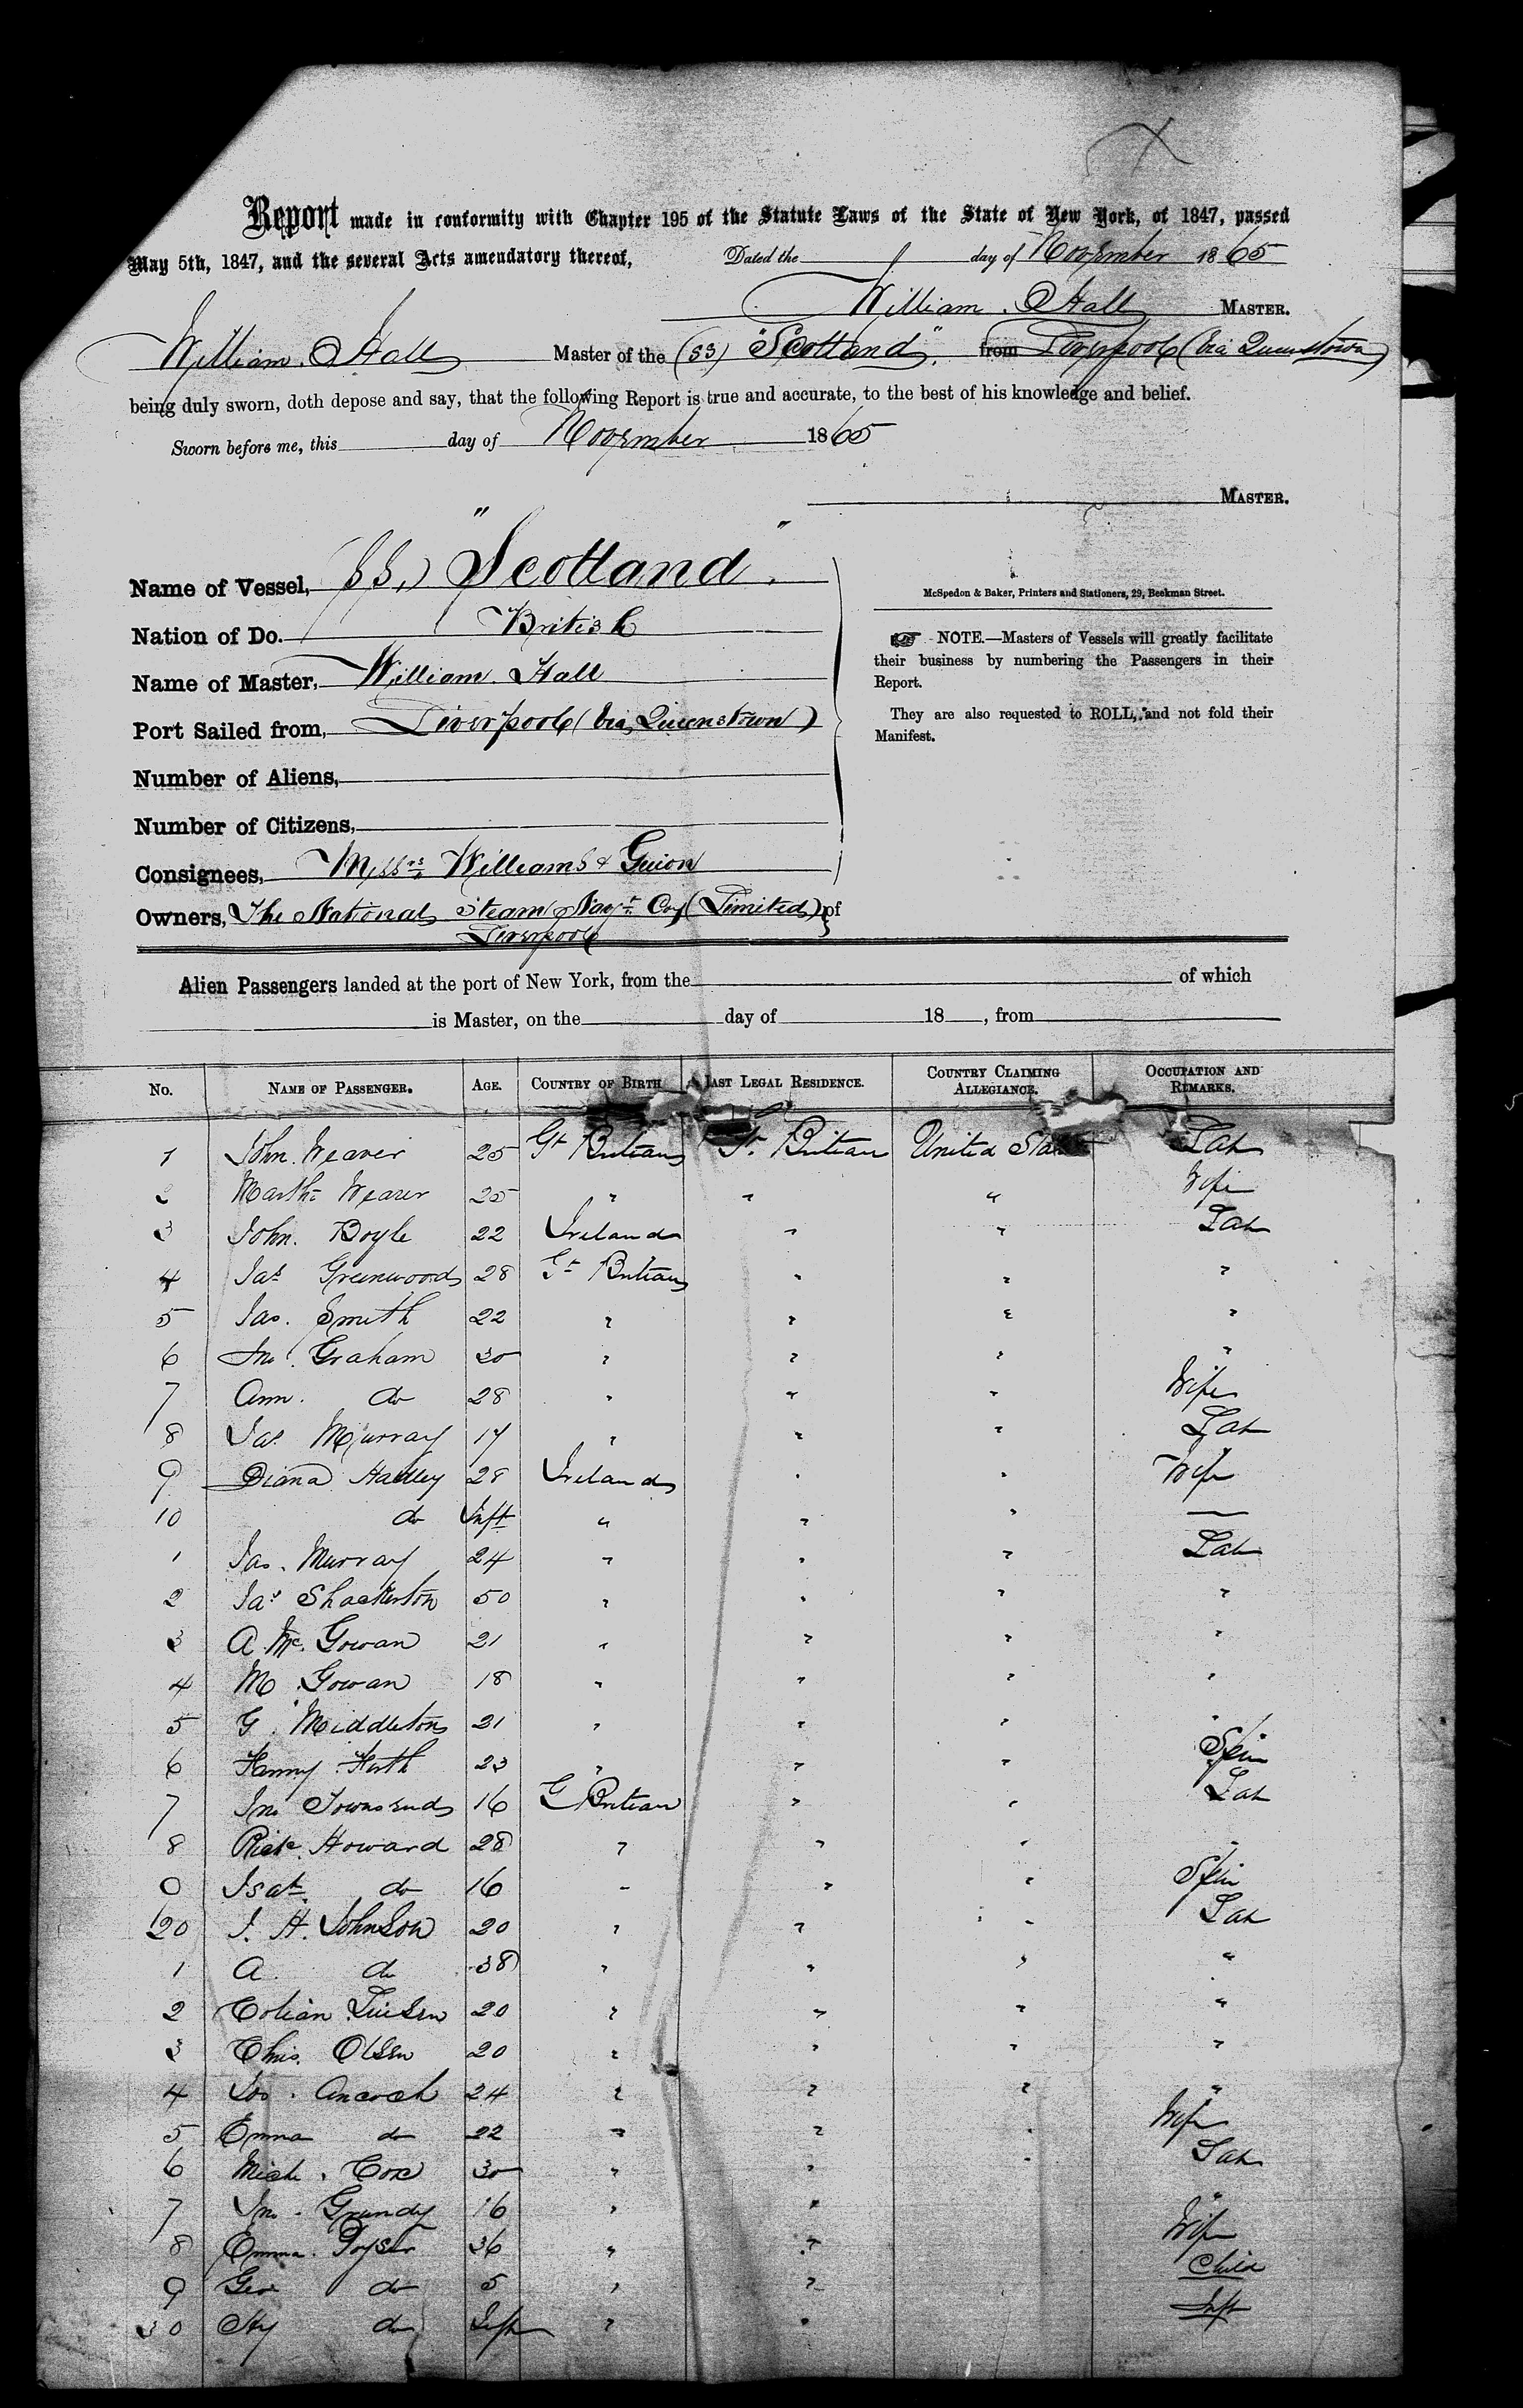 Report made in conformity with Chapter 195 of the Statute Laws of the State of New York, of 1847, passed
May 5th, 1847, and the several Acts amendatory thereof, Dated the day of November 1865
William Hall MASTER.
William Hall Master of the (SS) "Scotland", from Liverpool (via Queenstown)
being duly sworn, doth depose and say, that the following Report is true and accurate, to the best of his knowledge and belief.
Sworn before me, this day of November 1865
MASTER.
Name of Vessel, (SS.) "Scotland".
McSpedon & Baker, Printers and Stationers, 29, Beekman Street.
Nation of Do. British
Name of Master, William Hall
Port Sailed from, Liverpool (via Queenstown)
Number of Aliens,
Number of Citizens,
Consignees, Messrs Williams & Guion
Owners, The National Steam Navn Coy (Limited) of
Liverpool
NOTE.—Masters of Vessels will greatly facilitate
their business by numbering the Passengers in their
Report.
They are also requested to ROLL, and not fold their
Manifest.
Alien Passengers landed at the port of New York, from the of which
is Master, on the day of 18 , from
No. NAME OF PASSENGER. AGE. COUNTRY OF BIRTH LAST LEGAL RESIDENCE. COUNTRY CLAIMING ALLEGIANCE. OCCUPATION AND REMARKS.
1 John Weaver 25 Gt Britain Gt Britain United States Lab
2 Marth Weaver 25 " " " Wife
3 John Boyle 22 Ireland " " Lab
4 Jas Greenwood 28 Gt Britain " " "
5 Jas. Smith 22 " " " "
6 Jno. Graham 30 " " " "
7 Ann. do 28 " " " Wife
8 Jas. Murray 17 " " " Lab
9 Diana Hadley 28 Ireland " " Wife
10 do Inft " " " —
1 Jas. Murray 24 " " " Lab
2 Jas Shackerton 50 " " " "
3 A. Mc. Gowan 21 " " " "
4 M Gowan 18 " " " "
5 G. Middleton 21 " " " "
6 Fanny Firth 23 " " " Spin
7 Jno Townsend 16 G Britain " " Lab
8 Howard 28 " " " "
9 Isab. do 16 " " " Spin
20 J. H. Johnson 20 " " " Lab
1 A. do 38 " " " "
2 20 " " " "
3 Chris. Olsen 20 " " " "
4 24 " " " "
5 Emma do 22 " " " Wife
6 Mich. Cox 30 " " " Lab
7 Jno. Grundy 16 " " "
8 Emma. Poyser 36 " " Wife
9 Geo do 5 " " Child
30 Hy do Inft " " Inft